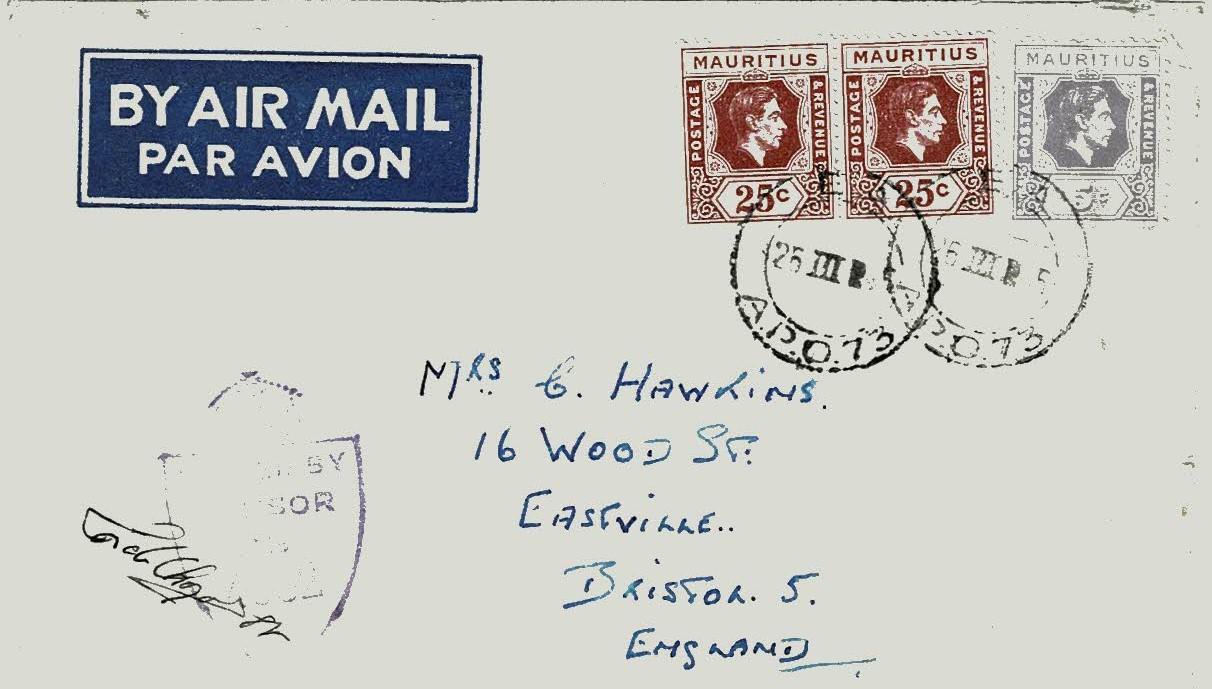 BY AIR MAIL
PAR AVION
MAURITIUS
POSTAGE
& REVENUE
25c
MAURITIUS
POSTAGE
& REVENUE
25c
MAURITIUS
POSTAGE
& REVENUE
25 III
A.P.O.73
A.P.O.73
MRS G. HAWKINS.
16 WOOD ST.
EASTVILLE..
BRISTOL. 5.
ENGLAND
BY